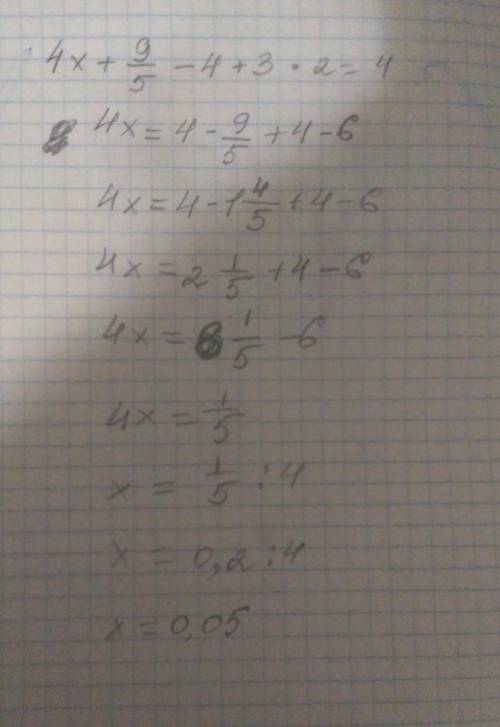 4x + 9/5 - 4 + 3 · 2 = 4
4x = 4 - 9/5 + 4 - 6
4x = 4 - 1 4/5 + 4 - 6
4x = 2 1/5 + 4 - 6
4x = 6 1/5 - 6
4x = 1/5
x = 1/5 : 4
x = 0,2 : 4
x = 0,05